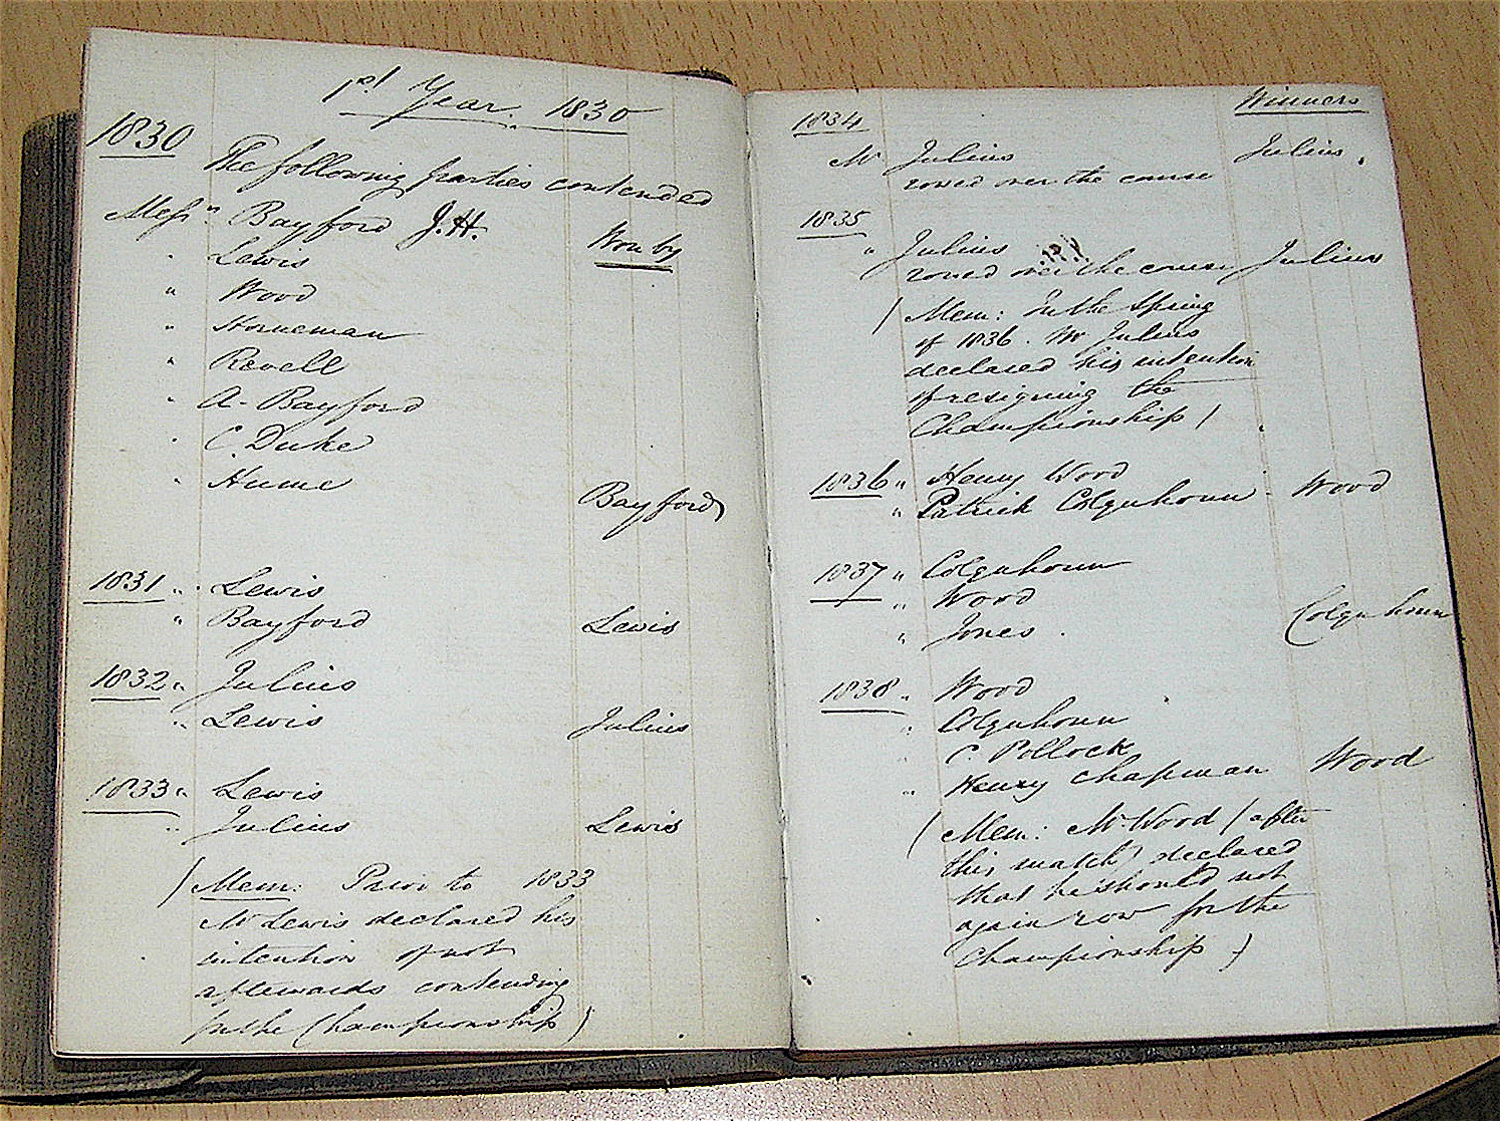 1st Year. 1830
1830
The following parties contended
Messrs Bayford J.H. Won by
" Lewis
" Wood
" Horneman
" Revell
" A. Bayford
" C. Duke
" Hume
Bayford
1831 " Lewis
" Bayford Lewis
1832 " Julius
" Lewis Julius
1833 " Lewis
" Julius Lewis
(Mem: Prior to 1833
Mr Lewis declared his
intention of not
afterwards contending
for the Championship)
Winners
1834
Mr Julius Julius.
rowed over the course
1835
" Julius
rowed over the course Julius
(Mem: In the Spring
of 1836. Mr Julius
declared his intention
of resigning the
Championship)
1836 " Henry Wood
" Patrick Colquhoun - Wood
1837 " Colquhoun
" Wood
" Jones. Colquhoun
1838 " Wood
" Colquhoun
" C. Pollock
" Henry Chapman Wood
(Mem: Mr Wood (after
this match) declared
that he should not
again row for the
Championship)